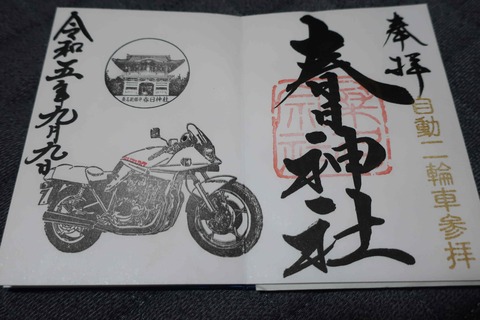 奉拝
自動二輪車参拝
春日神社
春日神社
令和五年九月九日